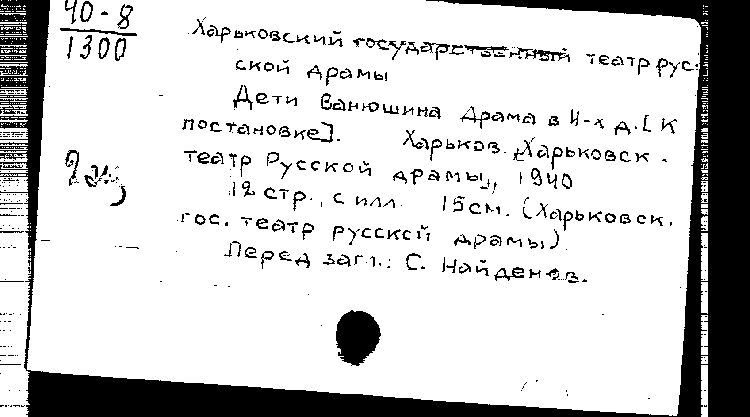 40-8
1300
Харьковский государственный театр рус-
ской драмы
Дети Ванюшина Драма в 4-х д. [К
постановке]. Харьков "Харьковск.
театр Русской драмы", 1940
12 стр., с илл. 15см. (Харьковск.
гос. театр русской драмы)
Перед загл.: С. Найденов.
2 эк,